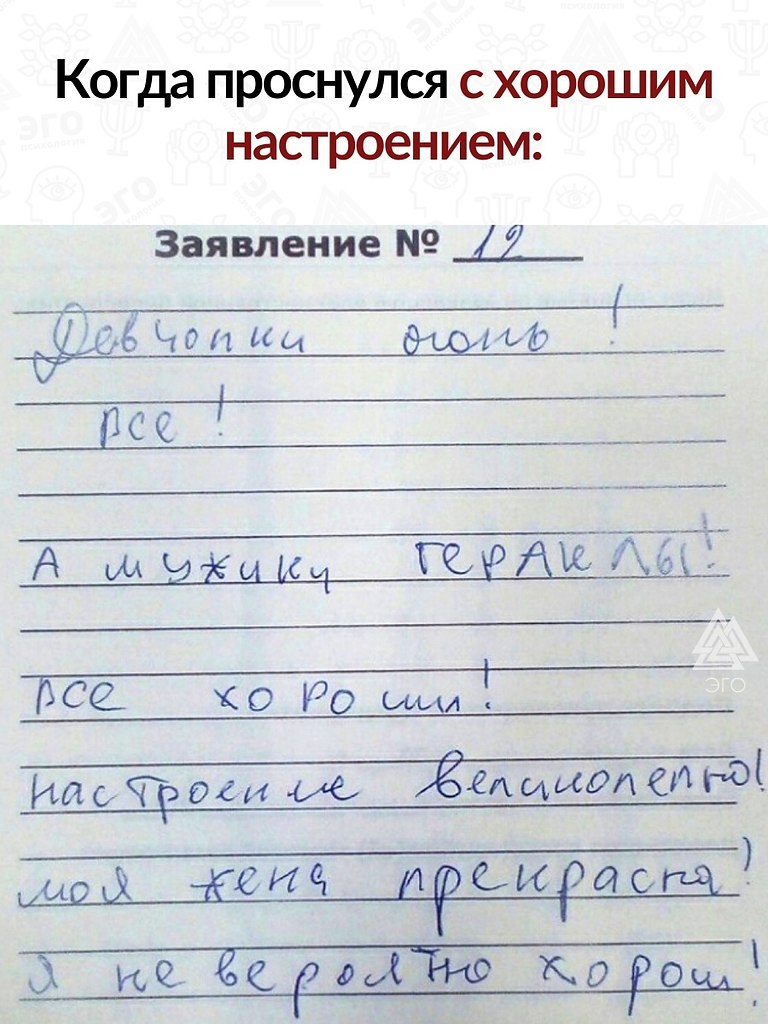 Когда проснулся с хорошим
настроением:
Заявление № 12
Девчонки огонь!
все!
А мужики гераклы!
все хороши!
настроение великолепно!
моя жена прекрасна!
я не вероятно хорош!
ЭГО